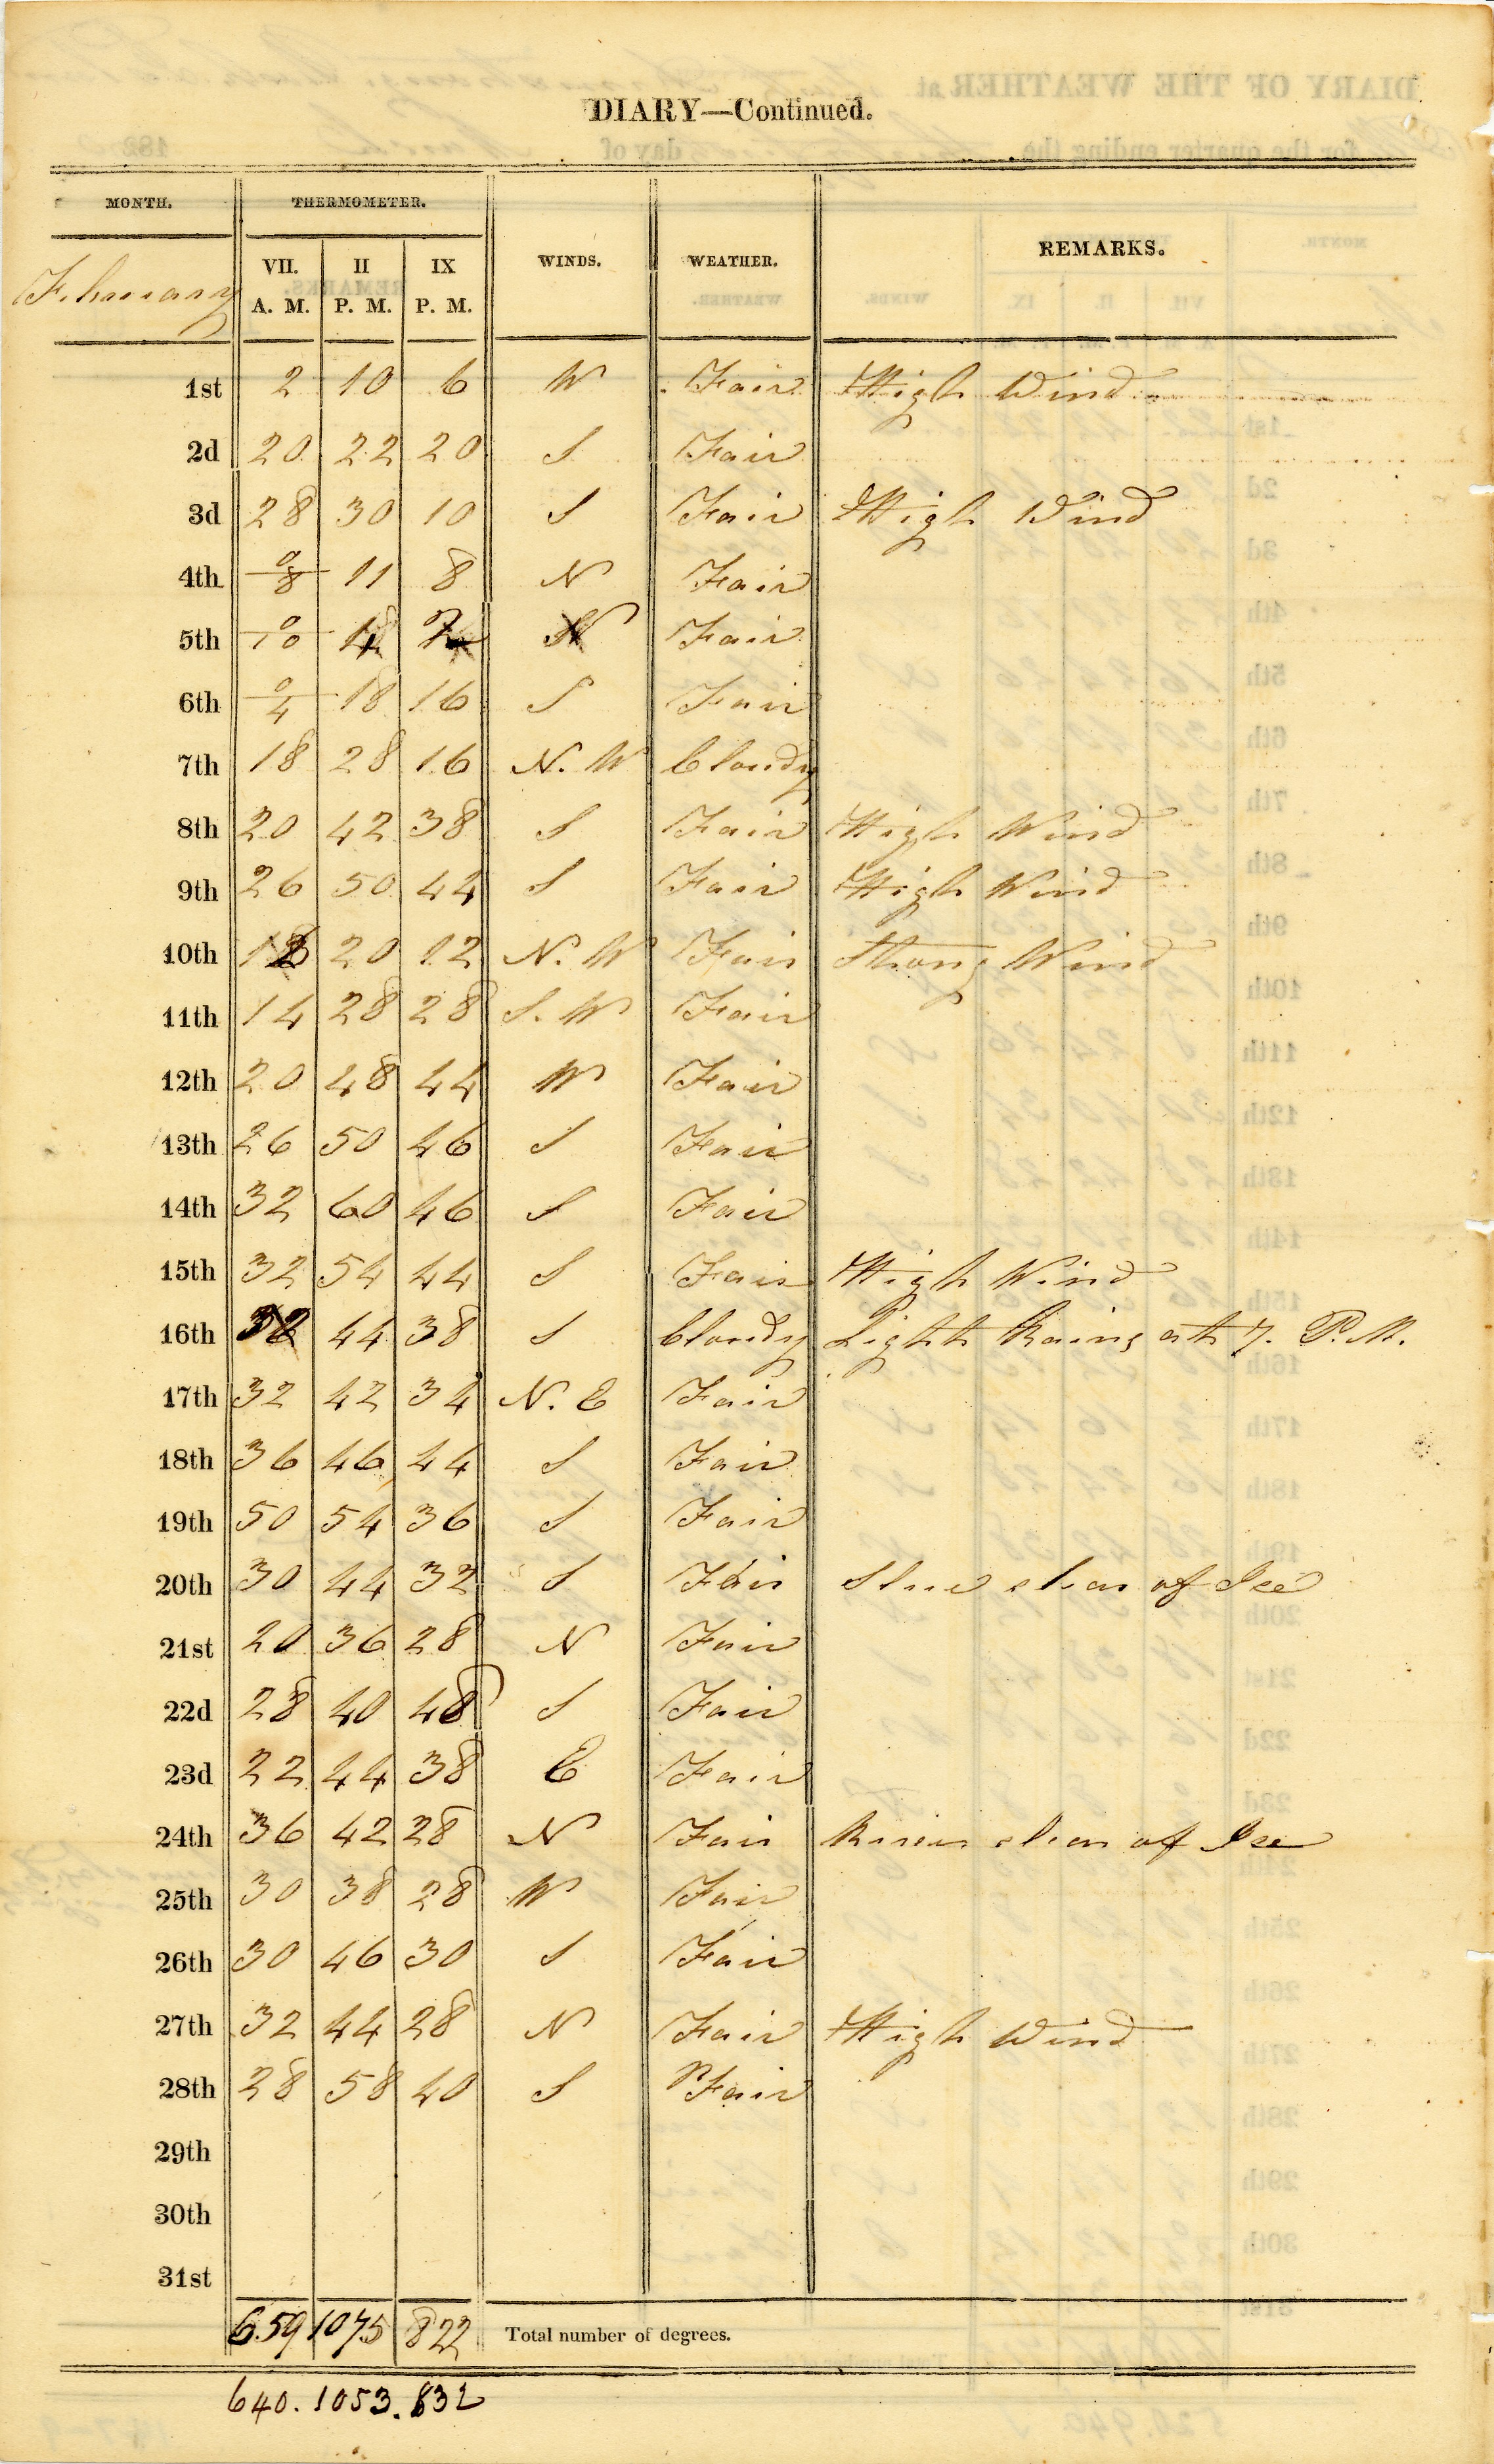 DIARY—Continued.
MONTH. THERMOMETER. WINDS. WEATHER. REMARKS.
February VII. A. M. II P. M. IX P. M.
1st 2 10 6 W Fair High Wind
2d 20 22 20 S Fair
3d 28 30 10 S Fair High Wind
4th 0/8 11 8 N Fair
5th 0/10 N Fair
6th 0/4 18 16 S Fair
7th 18 28 16 N. W Cloudy
8th 20 42 38 S Fair High Wind
9th 26 50 44 S Fair High Wind
10th 20 12 N. W Fair Strong Wind
11th 14 28 28 S. W Fair
12th 20 48 44 W Fair
13th 26 50 46 S Fair
14th 32 60 46 S Fair
15th 32 54 44 S Fair High Wind
16th 32 44 38 S Cloudy Light Rains at 7. P.M.
17th 32 42 34 N. E Fair
18th 36 46 44 S Fair
19th 50 54 36 S Fair
20th 30 44 32 S Fair clear of Ice
21st 20 36 28 N Fair
22d 28 40 48 S Fair
23d 22 44 38 E Fair
24th 36 42 28 N Fair River clear of Ice
25th 30 38 28 W Fair
26th 30 46 30 S Fair
27th 32 44 28 N Fair High Wind
28th 28 58 40 S Fair
29th
30th
31st
659 1075 822 Total number of degrees.
640. 1053. 832